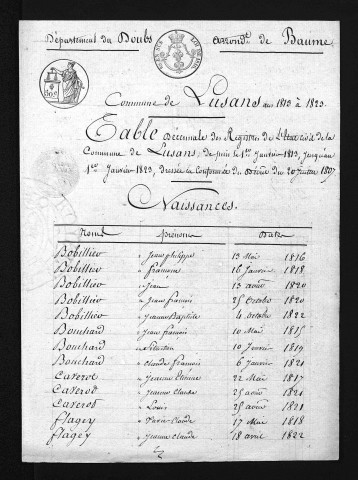 Département du Doubs
Arrond.t de Baume
Commune de Lusans an 1813 à 1823.
Table Décennale des Registres de l'Etat civil de la
Commune de Lusans, depuis le 1.er Janvier 1813, jusqu'au
1.er Janvier 1823, dressée en Conformité du Décret du 20 Juillet 1807
Naissances.
Noms prénoms Dates
Bobillier Jean philippe 13 Mai 1816
Bobillier François 16 Janvier 1818
Bobillier Jean 13 août 1820
Bobillier Jean françois 25 Octobre 1820
Bobillier Jeanne Baptiste 4 octobre 1822
Bouchard Jean françois 10 Mai 1815
Bouchard 10 Janvier 1819
Bouchard Claude françois 6 Janvier 1821
Caverot Jeanne Etienne 22 Mai 1817
Caverot Jeanne Claude 25 août 1821
Caverot Louis 25 août 1821
Flagey Claude 17 Mai 1818
Flagey Jeanne Claude 18 avril 1822